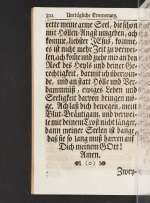 302. Inbrünstige Ermunterung.
rette meine arme Seel, die schon
mit Höllen-Angst umgeben, ach
komme, liebster JEsus, komme,
es ist nicht mehr Zeit zu verwei-
len, ach eile und ziehe mir an den
Rock des Heyls und deiner Ge-
rechtigkeit, damit ich überwin-
de, und an statt Höll und Ver-
dammniß, ewiges Leben und
Seeligkeit darvon bringen mö-
ge. Ach laß dich bewegen, mein
Blut-Bräutigam, und verweile
mit deinem Trost nicht länger,
dann meiner Seelen ist bange,
daß sie so lang muß harren auf
Dich meinem GOtt!
Amen.
(o)
Zwey-